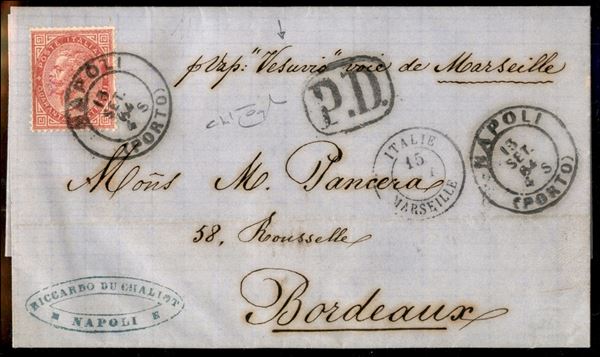 POSTE ITALIANE
NAPOLI
13
SET.
64
4 S
(PORTO)
p Vap: "Vesuvio" voie de Marseille
P.D.
ITALIE
15
MARSEILLE
NAPOLI
13
SET.
64
4 S
(PORTO)
Moñs M. Pancera
58, Rousselle
Bordeaux
RICCARDO DU CHALIOT
NAPOLI